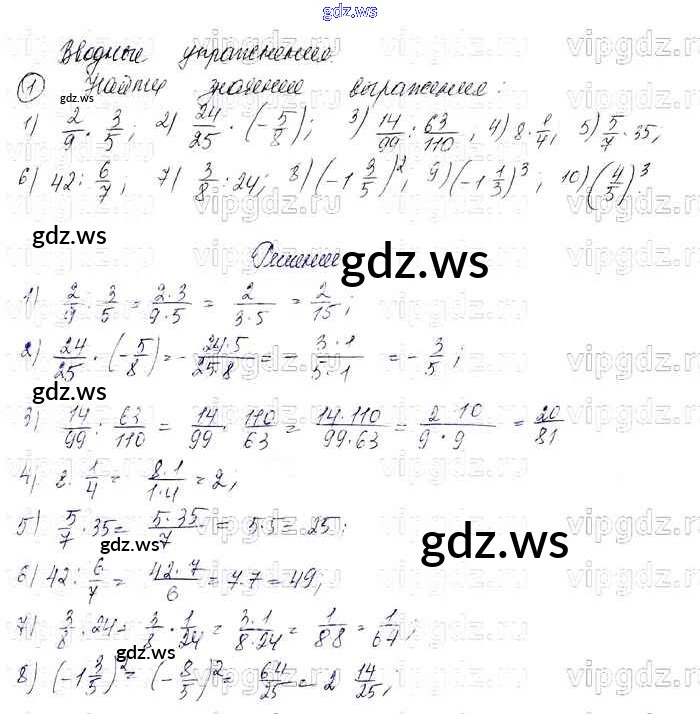 gdz.ws
Вводные упражнения.
① Найти значение выражения:
gdz.ws
1) 2/9 · 3/5; 2) 24/25 · (-5/8); 3) 14/99 : 63/110, 4) 8 · 1/4, 5) 5/7 · 35,
6) 42 : 6/7; 7) 3/8 : 24; 8) (-1 3/5)^2, 9) (-1 1/3)^3; 10) (4/5)^3.
gdz.ws
Решение
gdz.ws
1) 2/9 · 3/5 = 2·3/9·5 = 2/3·5 = 2/15;
2) 24/25 · (-5/8) = - 24·5/25·8 = - 3·1/5·1 = - 3/5;
gdz.ws
3) 14/99 : 63/110 = 14/99 · 110/63 = 14·110/99·63 = 2·10/9·9 = 20/81
4) 8 · 1/4 = 8·1/1·4 = 2;
5) 5/7 · 35 = 5·35/7 = 5·5 = 25;
gdz.ws
gdz.ws
6) 42 : 6/7 = 42·7/6 = 7·7 = 49;
7) 3/8 : 24 = 3/8 · 1/24 = 3·1/8·24 = 1/88 = 1/64;
8) (-1 3/5)^2 = (-8/5)^2 = 64/25 = 2 14/25;
gdz.ws
vipgdz.ru